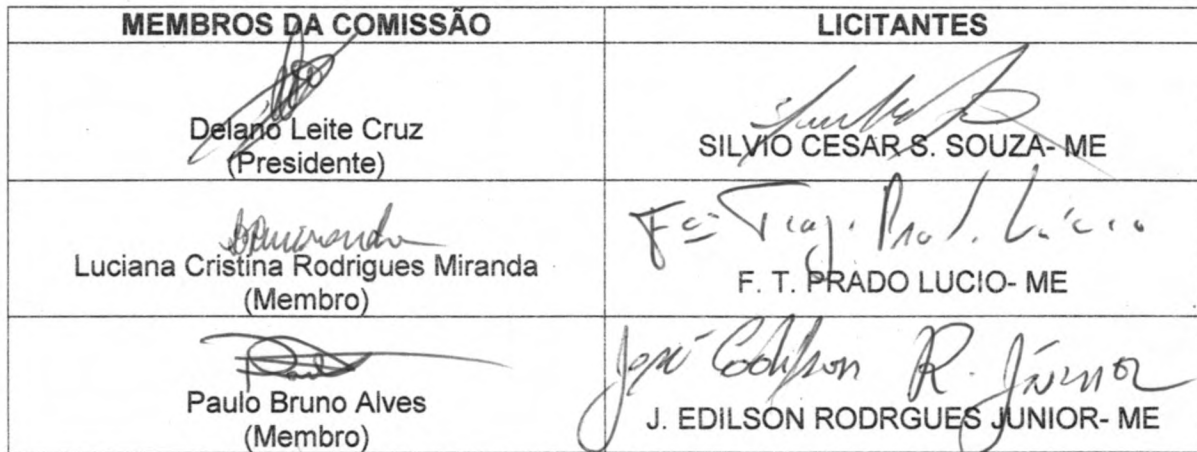 MEMBROS DA COMISSÃO
LICITANTES
Delano Leite Cruz
(Presidente)
SILVIO CESAR S. SOUZA- ME
Luciana Cristina Rodrigues Miranda
(Membro)
F. T. PRADO LUCIO- ME
Paulo Bruno Alves
(Membro)
José R. Júnior
J. EDILSON RODRGUES JUNIOR- ME